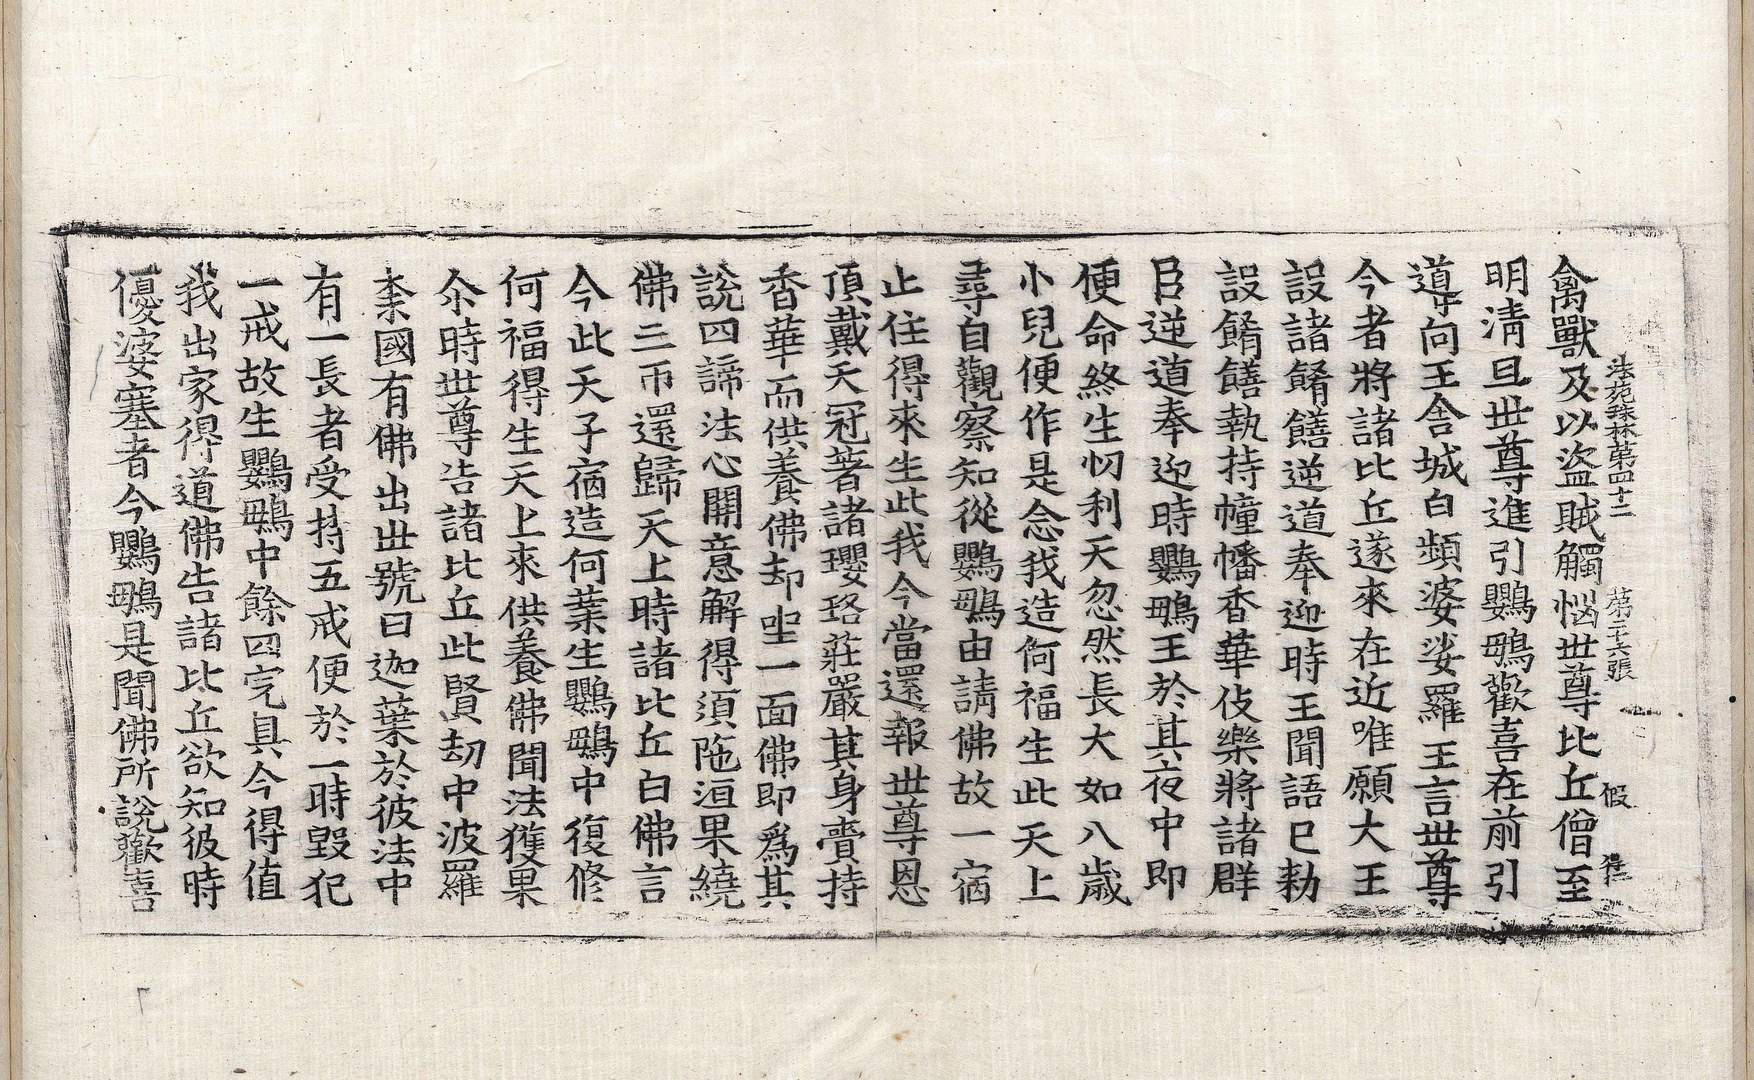 法苑珠林第四十二 第二十六張 假
禽獸及以盜賊觸惱世尊比丘僧至
明清旦世尊進引鸚鵡歡喜在前引
導向王舍城白頻婆娑羅王言世尊
今者將諸比丘遂來在近唯願大王
設諸餚饍逆道奉迎時王聞語已勑
設餚饍執持幢幡香華伎樂將諸群
臣逆道奉迎時鸚鵡王於其夜中即
便命終生忉利天忽然長大如八歲
小兒便作是念我造何福生此天上
尋自觀察知從鸚鵡由請佛故一宿
止住得來生此我今當還報世尊恩
頂戴天冠著諸瓔珞莊嚴其身賷持
香華而供養佛却坐一面佛即爲其
說四諦法心開意解得須陁洹果繞
佛三帀還歸天上時諸比丘白佛言
今此天子宿造何業生鸚鵡中復修
何福得生天上來供養佛聞法獲果
尒時世尊告諸比丘此賢劫中波羅
柰國有佛出世號曰迦葉於彼法中
有一長者受持五戒便於一時毀犯
一戒故生鸚鵡中餘四完具今得值
我出家得道佛告諸比丘欲知彼時
優婆塞者今鸚鵡是聞佛所說歡喜